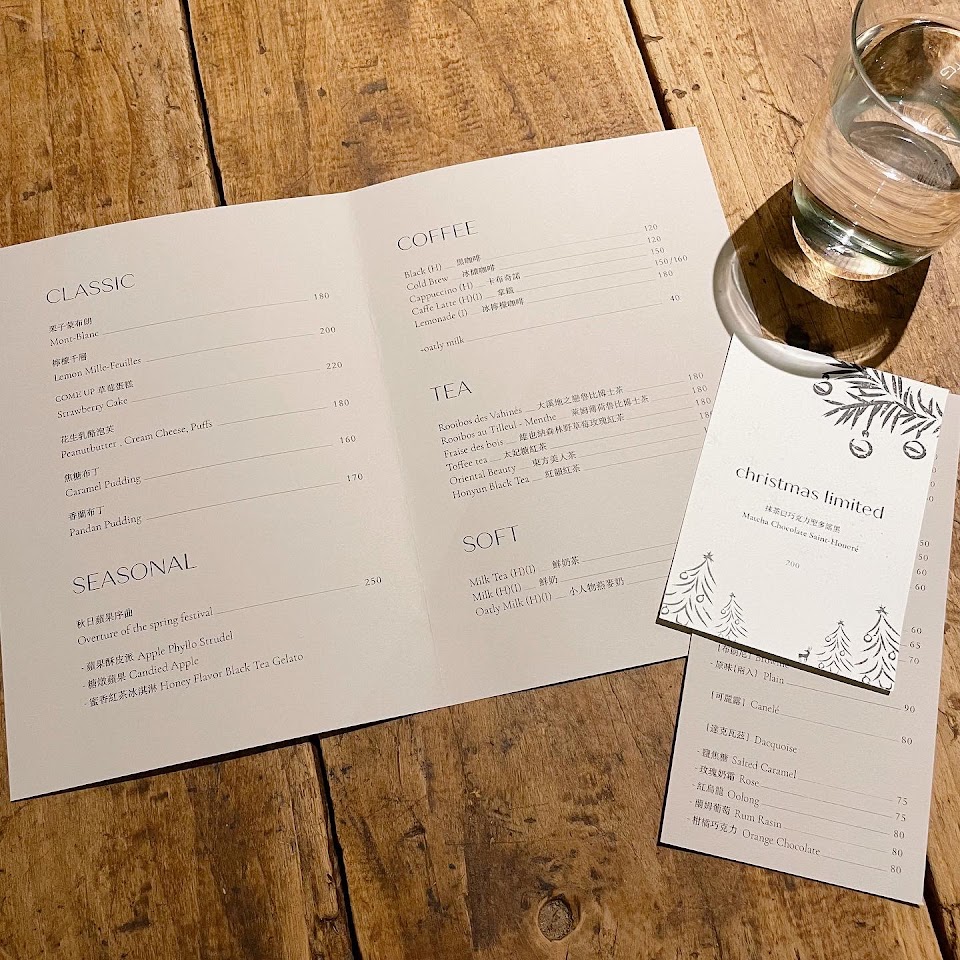 CLASSIC
栗子蒙布朗
Mont-Blanc 180
檸檬千層
Lemon Mille-Feuilles 200
COME UP 草莓蛋糕
Strawberry Cake 220
花生乳酪泡芙
Peanutbutter , Cream Cheese, Puffs 180
焦糖布丁
Caramel Pudding 160
香蘭布丁
Pandan Pudding 170
SEASONAL
秋日蘋果序曲
Overture of the spring festival 250
- 蘋果酥皮派 Apple Phyllo Strudel
- 糖燉蘋果 Candied Apple
- 蜜香紅茶冰淇淋 Honey Flavor Black Tea Gelato
COFFEE
Black (H) 黑咖啡 120
Cold Brew 冰釀咖啡 120
Cappuccino (H) 卡布奇諾 150
Caffe Latte (H)(I) 拿鐵 150/160
Lemonade (I) 冰檸檬咖啡 180
-oatly milk 40
TEA
Rooibos des Vahinés 大溪地之戀魯比博士茶 180
Rooibos au Tilleul - Menthe 萊姆薄荷魯比博士茶 180
Fraise des bois 維也納森林野草莓玫瑰紅茶
Toffee tea 太妃糖紅茶
Oriental Beauty 東方美人茶
Honyun Black Tea 紅韻紅茶
SOFT
Milk Tea (H)(I) 鮮奶茶
Milk (H)(I) 鮮奶
Oatly Milk (H)(I) 小人物燕麥奶
christmas limited
抹茶巧克力聖多諾黑
Matcha Chocolate Saint-Honoré
200
50
50
60
60
60
65
70
- 原味(兩入) Plain 90
【可麗露】 Canelé 80
【達克瓦茲】 Dacquoise
- 鹽焦糖 Salted Caramel 75
- 玫瑰奶霜 Rose 75
- 紅烏龍 Oolong 80
- 蘭姆葡萄 Rum Rasin 80
- 柑橘巧克力 Orange Chocolate 80